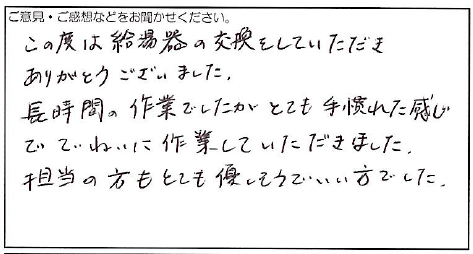 ご意見・ご感想などをお聞かせください。
この度は給湯器の交換をしていただき
ありがとうございました。
長時間の作業でしたがとても手慣れた感じ
でていねいに作業していただきました。
担当の方もとても優しそうでいい方でした。